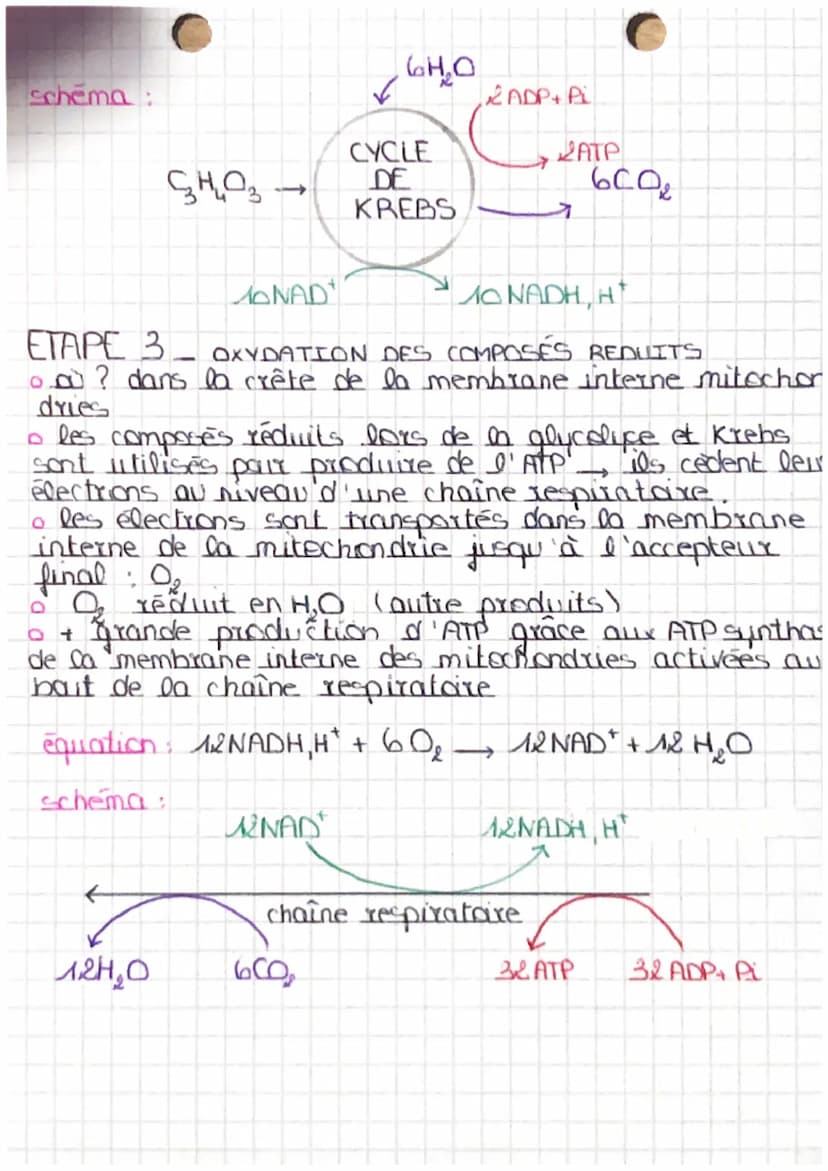 schéma :
6H₂O
2ADP+Pi
CYCLE
DE
KREBS
2ATP
6CO₂
C₃H₄O₃ →
10NAD⁺
10NADH,H⁺
ETAPE 3 - OXYDATION DES COMPOSÉS REDUITS
o où ? dans la crête de la membrane interne mitochon
dries
o les composés réduits lors de la glycolyse et Krebs
sont utilisés pour produire de l'ATP → ils cèdent leur
électrons au niveau d'une chaîne respiratoire.
o les électrons sont transportés dans la membrane
interne de la mitochondrie jusqu'à l'accepteur
final : O₂
o O₂ réduit en H₂O (autre produits)
o + grande production d'ATP grâce aux ATP synthas
de la membrane interne des mitochondries activées au
bout de la chaîne respiratoire
équation : 12NADH,H⁺ + 6O₂ → 12NAD⁺ + 12 H₂O
schéma :
12NAD⁺
12NADH,H⁺
chaîne respiratoire
12H₂O
6CO₂
32ATP
32ADP+Pi